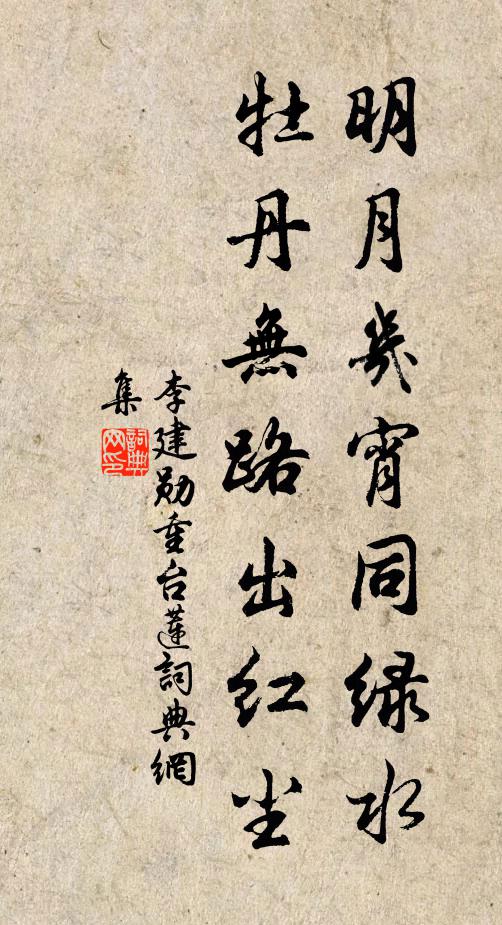 明月幾宵同緑水
牡丹無路出红尘
李建勋重台蓮詞典網
集
詞典
网印